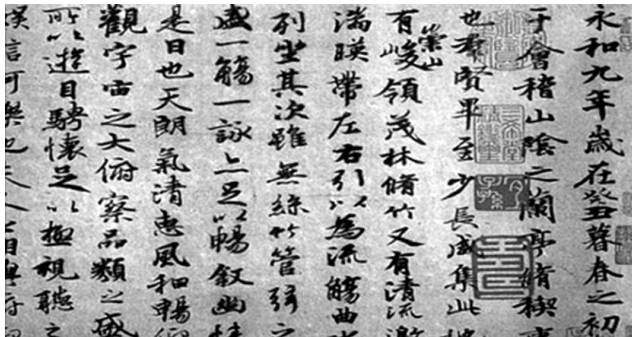 永和九年歲在癸丑暮春之初
于會稽山陰之蘭亭脩稧事
也群賢畢至少長咸集此地
有崇山峻領茂林脩竹又有清流激
湍暎帶左右引以為流觴曲水
列坐其次雖無絲竹管弦之
盛一觴一詠亦足以暢敘幽情
是日也天朗氣清惠風和暢仰
觀宇宙之大俯察品類之盛
所以遊目騁懷足以極視聽之
娛信可樂也夫人之相與俯